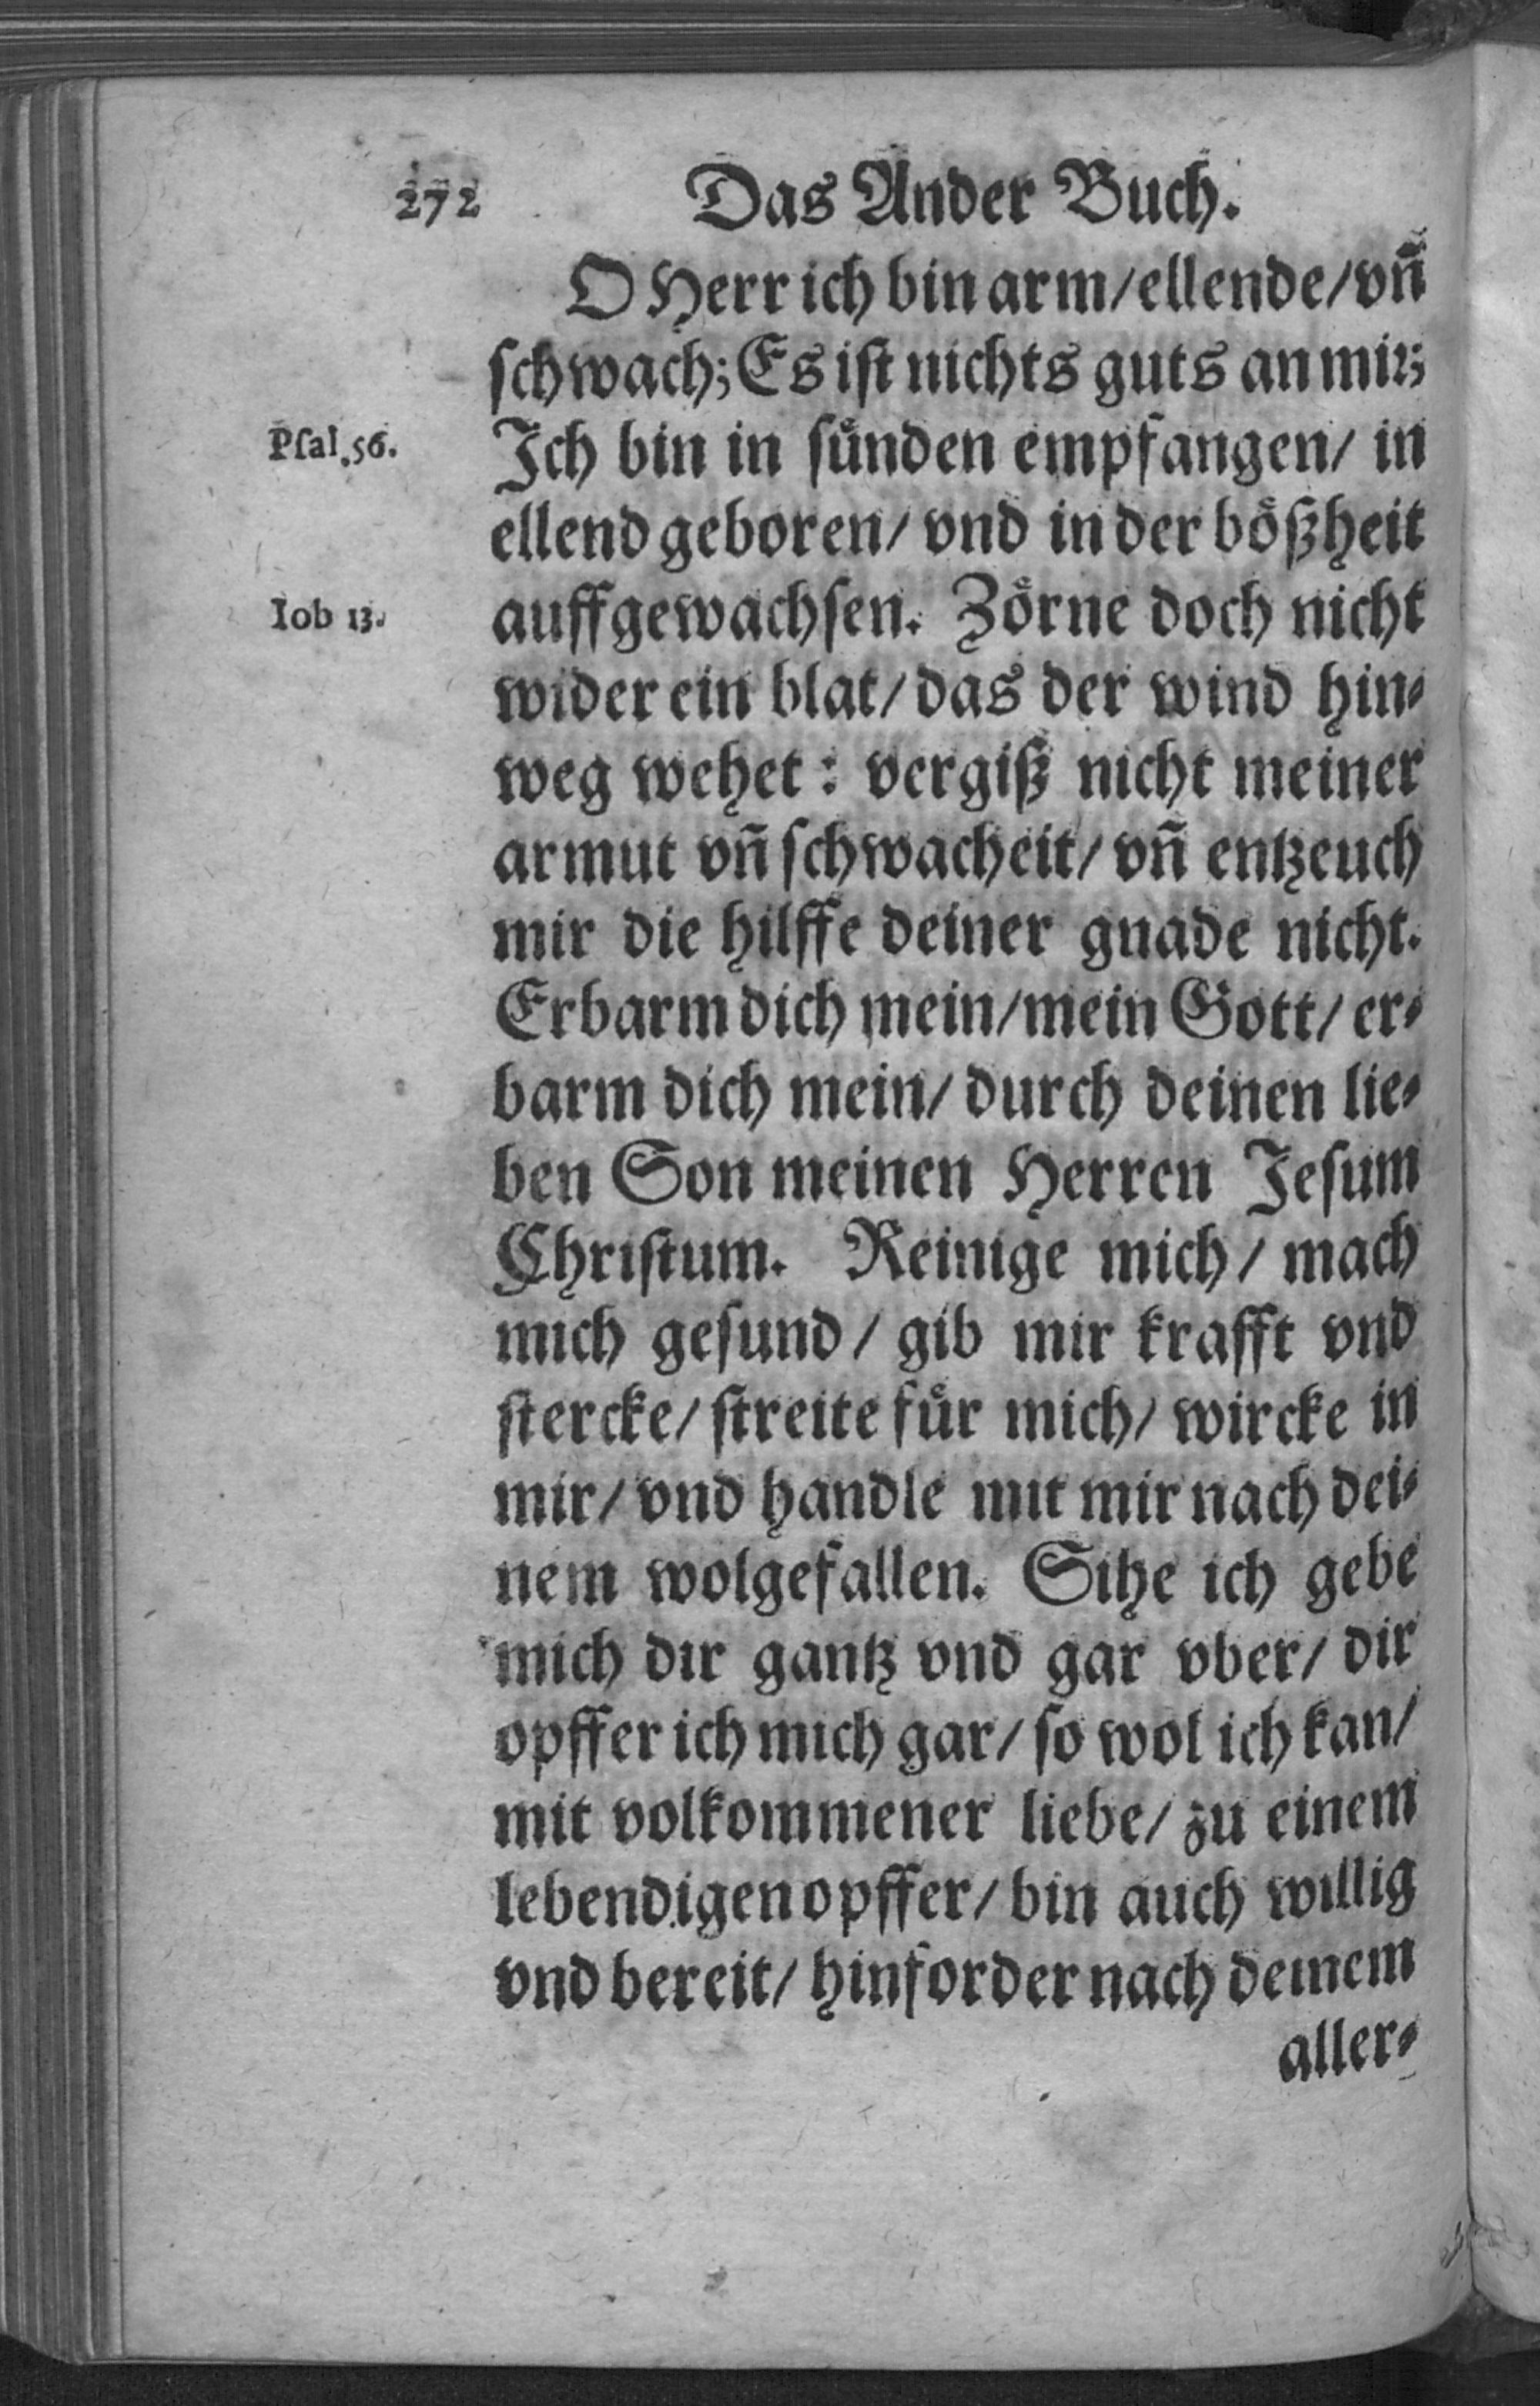 272 Das Ander Buch.
O Herr ich bin arm/ellende/vñ
schwach; Es ist nichts guts an mir;
Psal. 56.
Ich bin in sünden empfangen/ in
ellend geboren/ vnd in der bößheit
Iob 13.
auffgewachsen. Zörne doch nicht
wider ein blat/ das der wind hin-
weg wehet: vergiß nicht meiner
armut vñ schwacheit/ vñ entzeuch
mir die hilffe deiner gnade nicht.
Erbarm dich mein/mein Gott/ er-
barm dich mein/ durch deinen lie-
ben Son meinen Herren Jesum
Christum. Reinige mich/ mach
mich gesund/ gib mir krafft vnd
stercke/ streite für mich/ wircke in
mir/ vnd handle mit mir nach dei-
nem wolgefallen. Sihe ich gebe
mich dir gantz vnd gar vber/ dir
opffer ich mich gar/ so wol ich kan/
mit volkommener liebe/ zu einem
lebendigen opffer/ bin auch willig
vnd bereit/ hinforder nach deinem
aller-